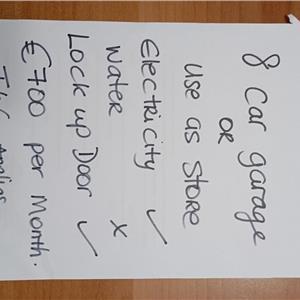 8 Car garage
OR
Use as STORE
Electricity ✓
Water x
Lock up Door ✓
€700 per Month.